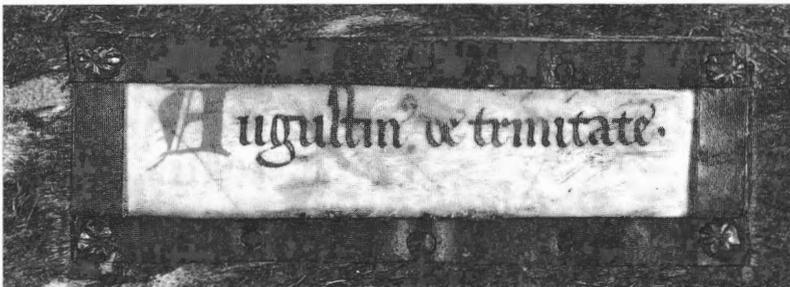 Augustin⁹ de trinitate·